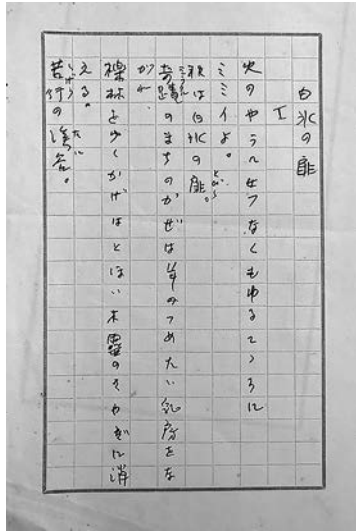 白氷の扉
I
火のやうにせつなくもゆるこころに
ミミイよ。
秋は白氷の扉。とびら
奇蹟のまちのかぜは岸のつめたい乳房をな
がれ、
裸林を歩くかげはとほい木霊のさわぎに消
える。
苦行の渓谷。